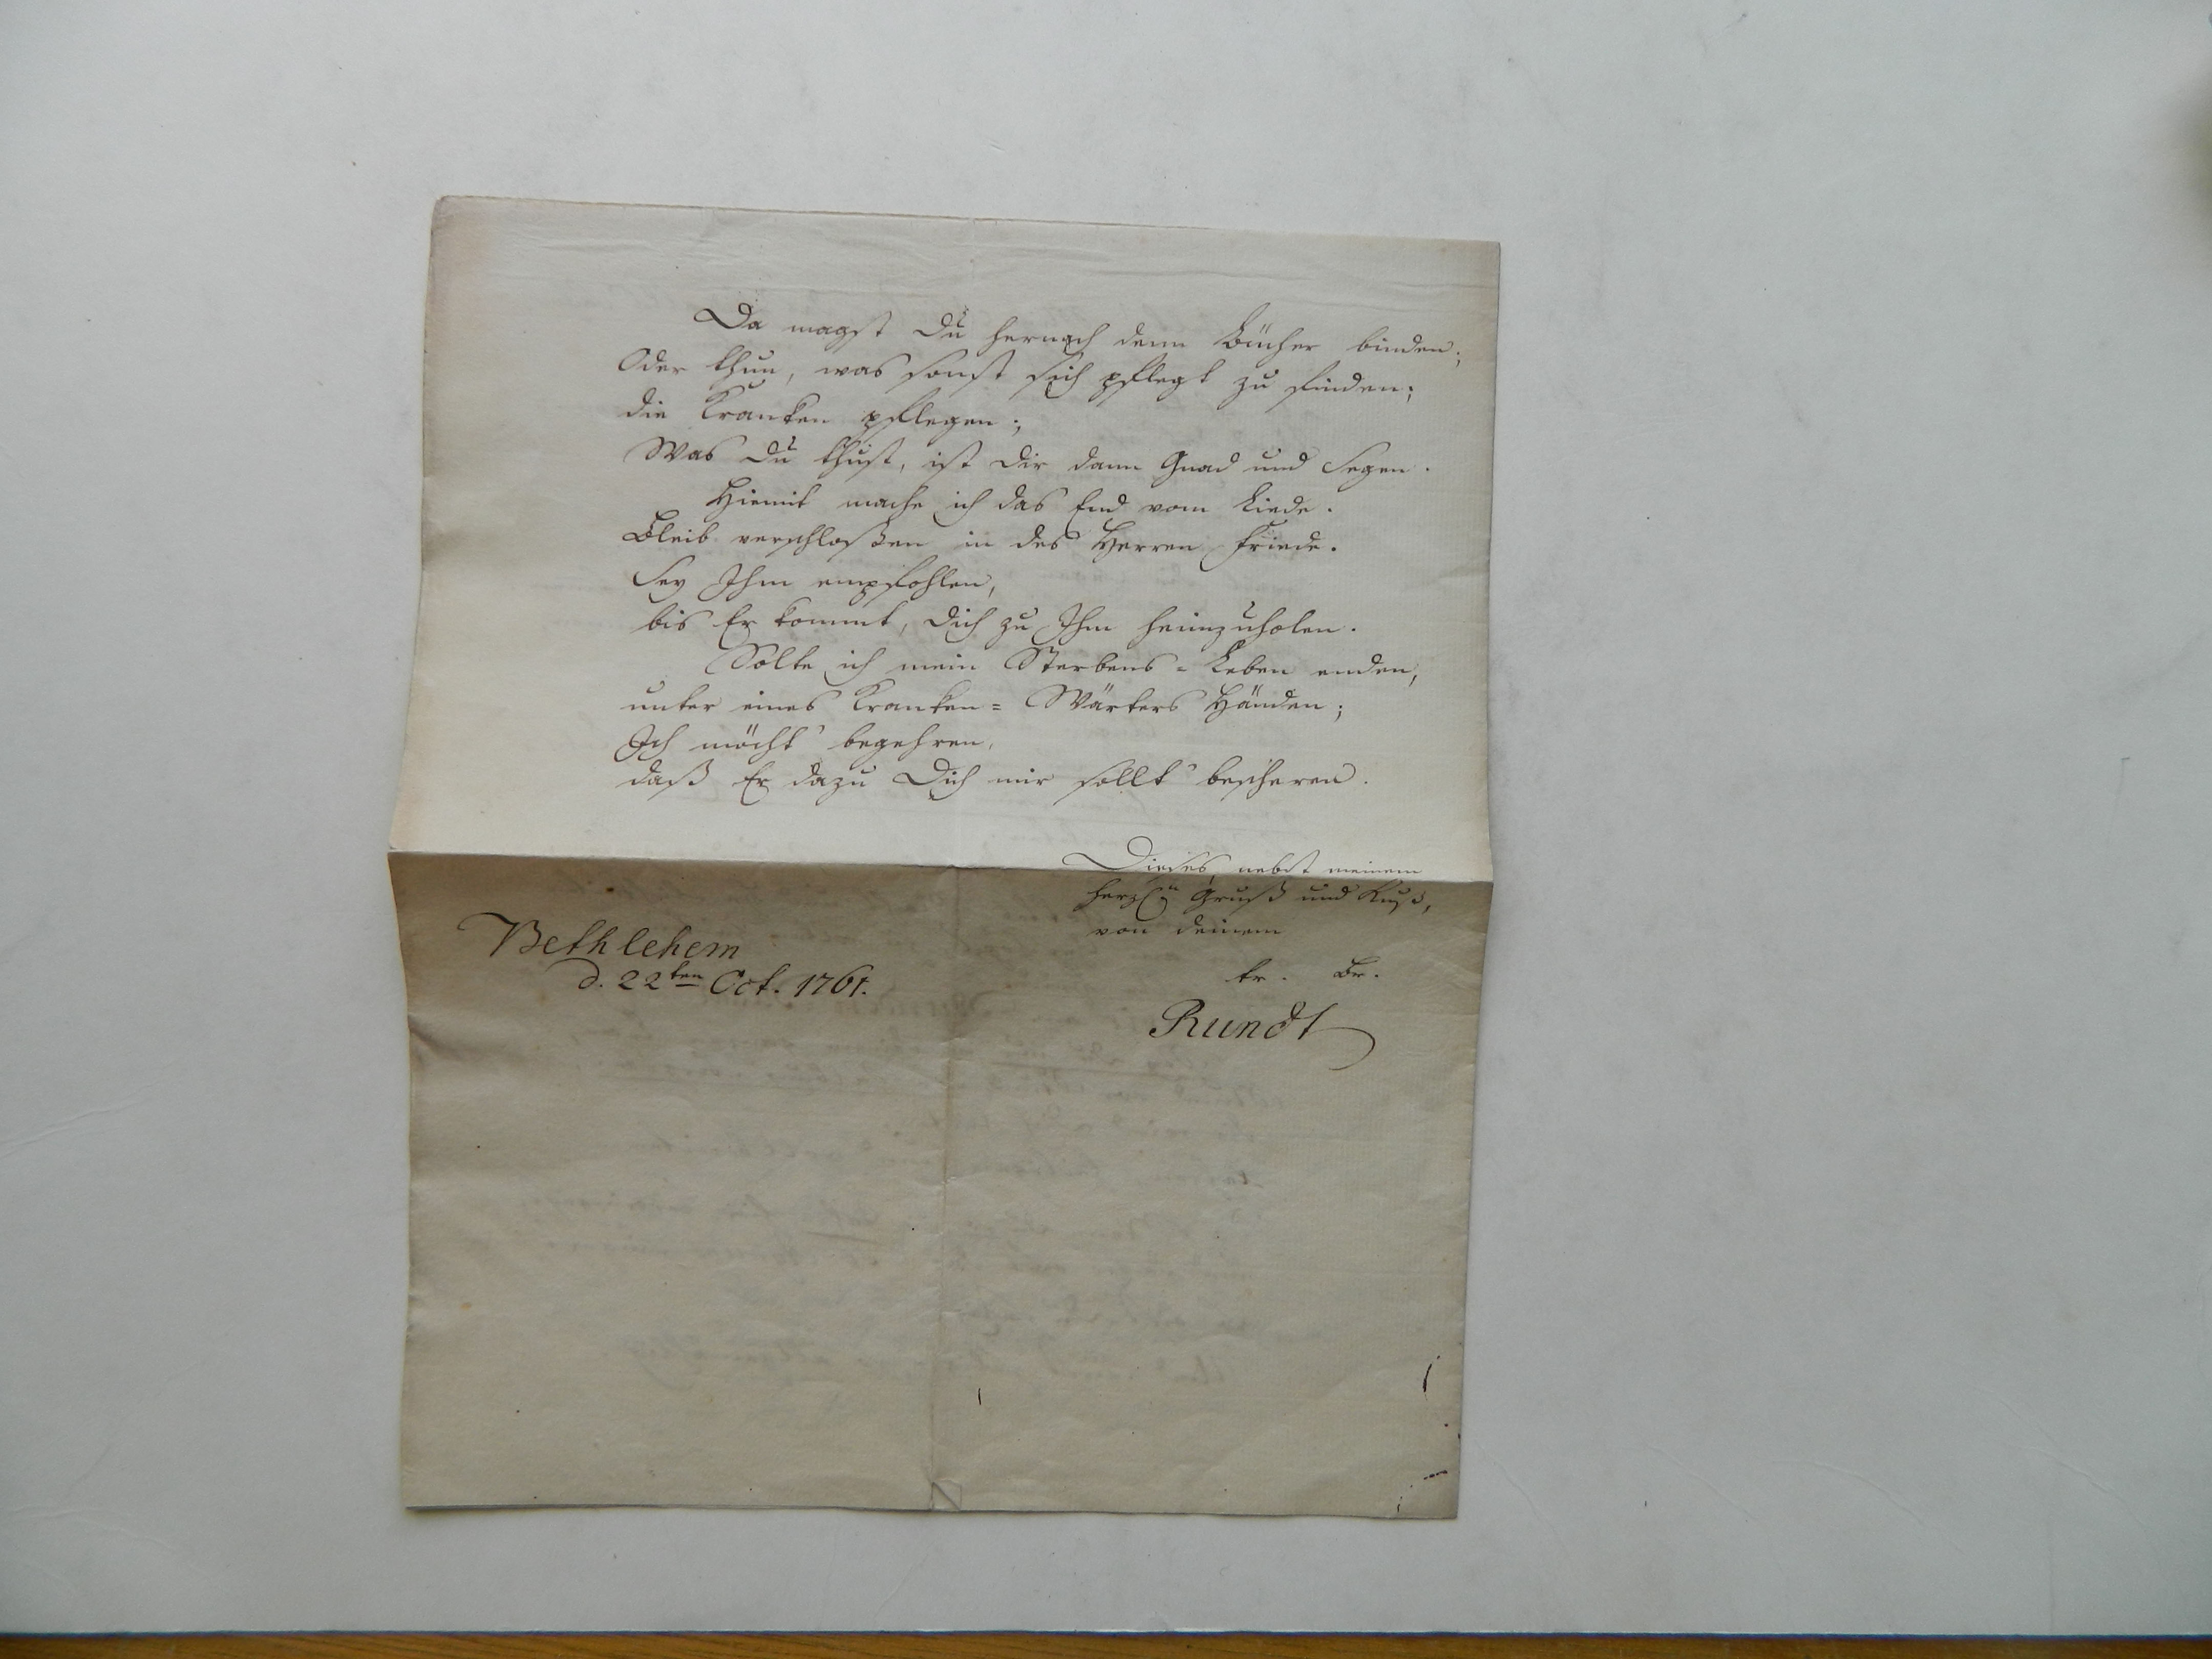 Da magst Du hernach denn Bücher binden;
Oder thun, was sonst sich pflegt zu finden;
die Kranken pflegen;
Was Du thust, ist dir dann Gnad und Segen.
Hiemit mache ich das End vom Liede.
Bleib verschloßen in des Herren Friede.
Sey Ihm empfohlen,
bis Er kommt, Dich zu Ihm heimzuholen.
Solte ich mein Sterbens=Leben enden,
unter eines Kranken=Wärters Händen;
Ich möcht' begehren,
daß Er dazu Dich mir sollt' bescheren.
Dieses, nebst meinem
herzln Gruß und Kuß,
von deinem
tr. Br.
Rundt
Bethlehem
d. 22ten Oct. 1761.